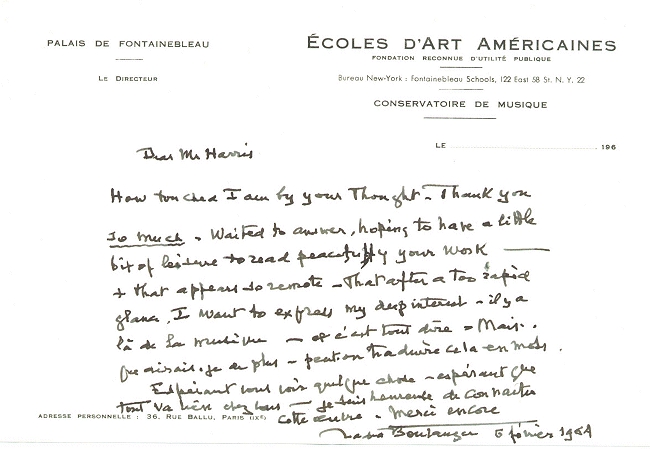 PALAIS DE FONTAINEBLEAU
LE DIRECTEUR
ÉCOLES D'ART AMÉRICAINES
FONDATION RECONNUE D'UTILITÉ PUBLIQUE
Bureau New-York : Fontainebleau Schools, 122 East 58 St. N. Y. 22
CONSERVATOIRE DE MUSIQUE
LE 196
Dear Mr Harris
How touched I am by your Thought - Thank you
so much - Waited to answer, hoping to have a little
bit of leisure to read peacefully your work —
+ that appears so remote - That after a too rapid
glance, I want to express my deep interest - il y a
là de la musique - et c'est tout dire - Mais..
que dirais-je de plus - peut on traduire cela en mots.
Espérant vous voir quelque - espérant que
tout va bien chez vous - je suis heureuse de connaître
cette œuvre - Merci encore
ADRESSE PERSONNELLE : 36, RUE BALLU, PARIS (IXe)
Nadia Boulanger 6 février 1964